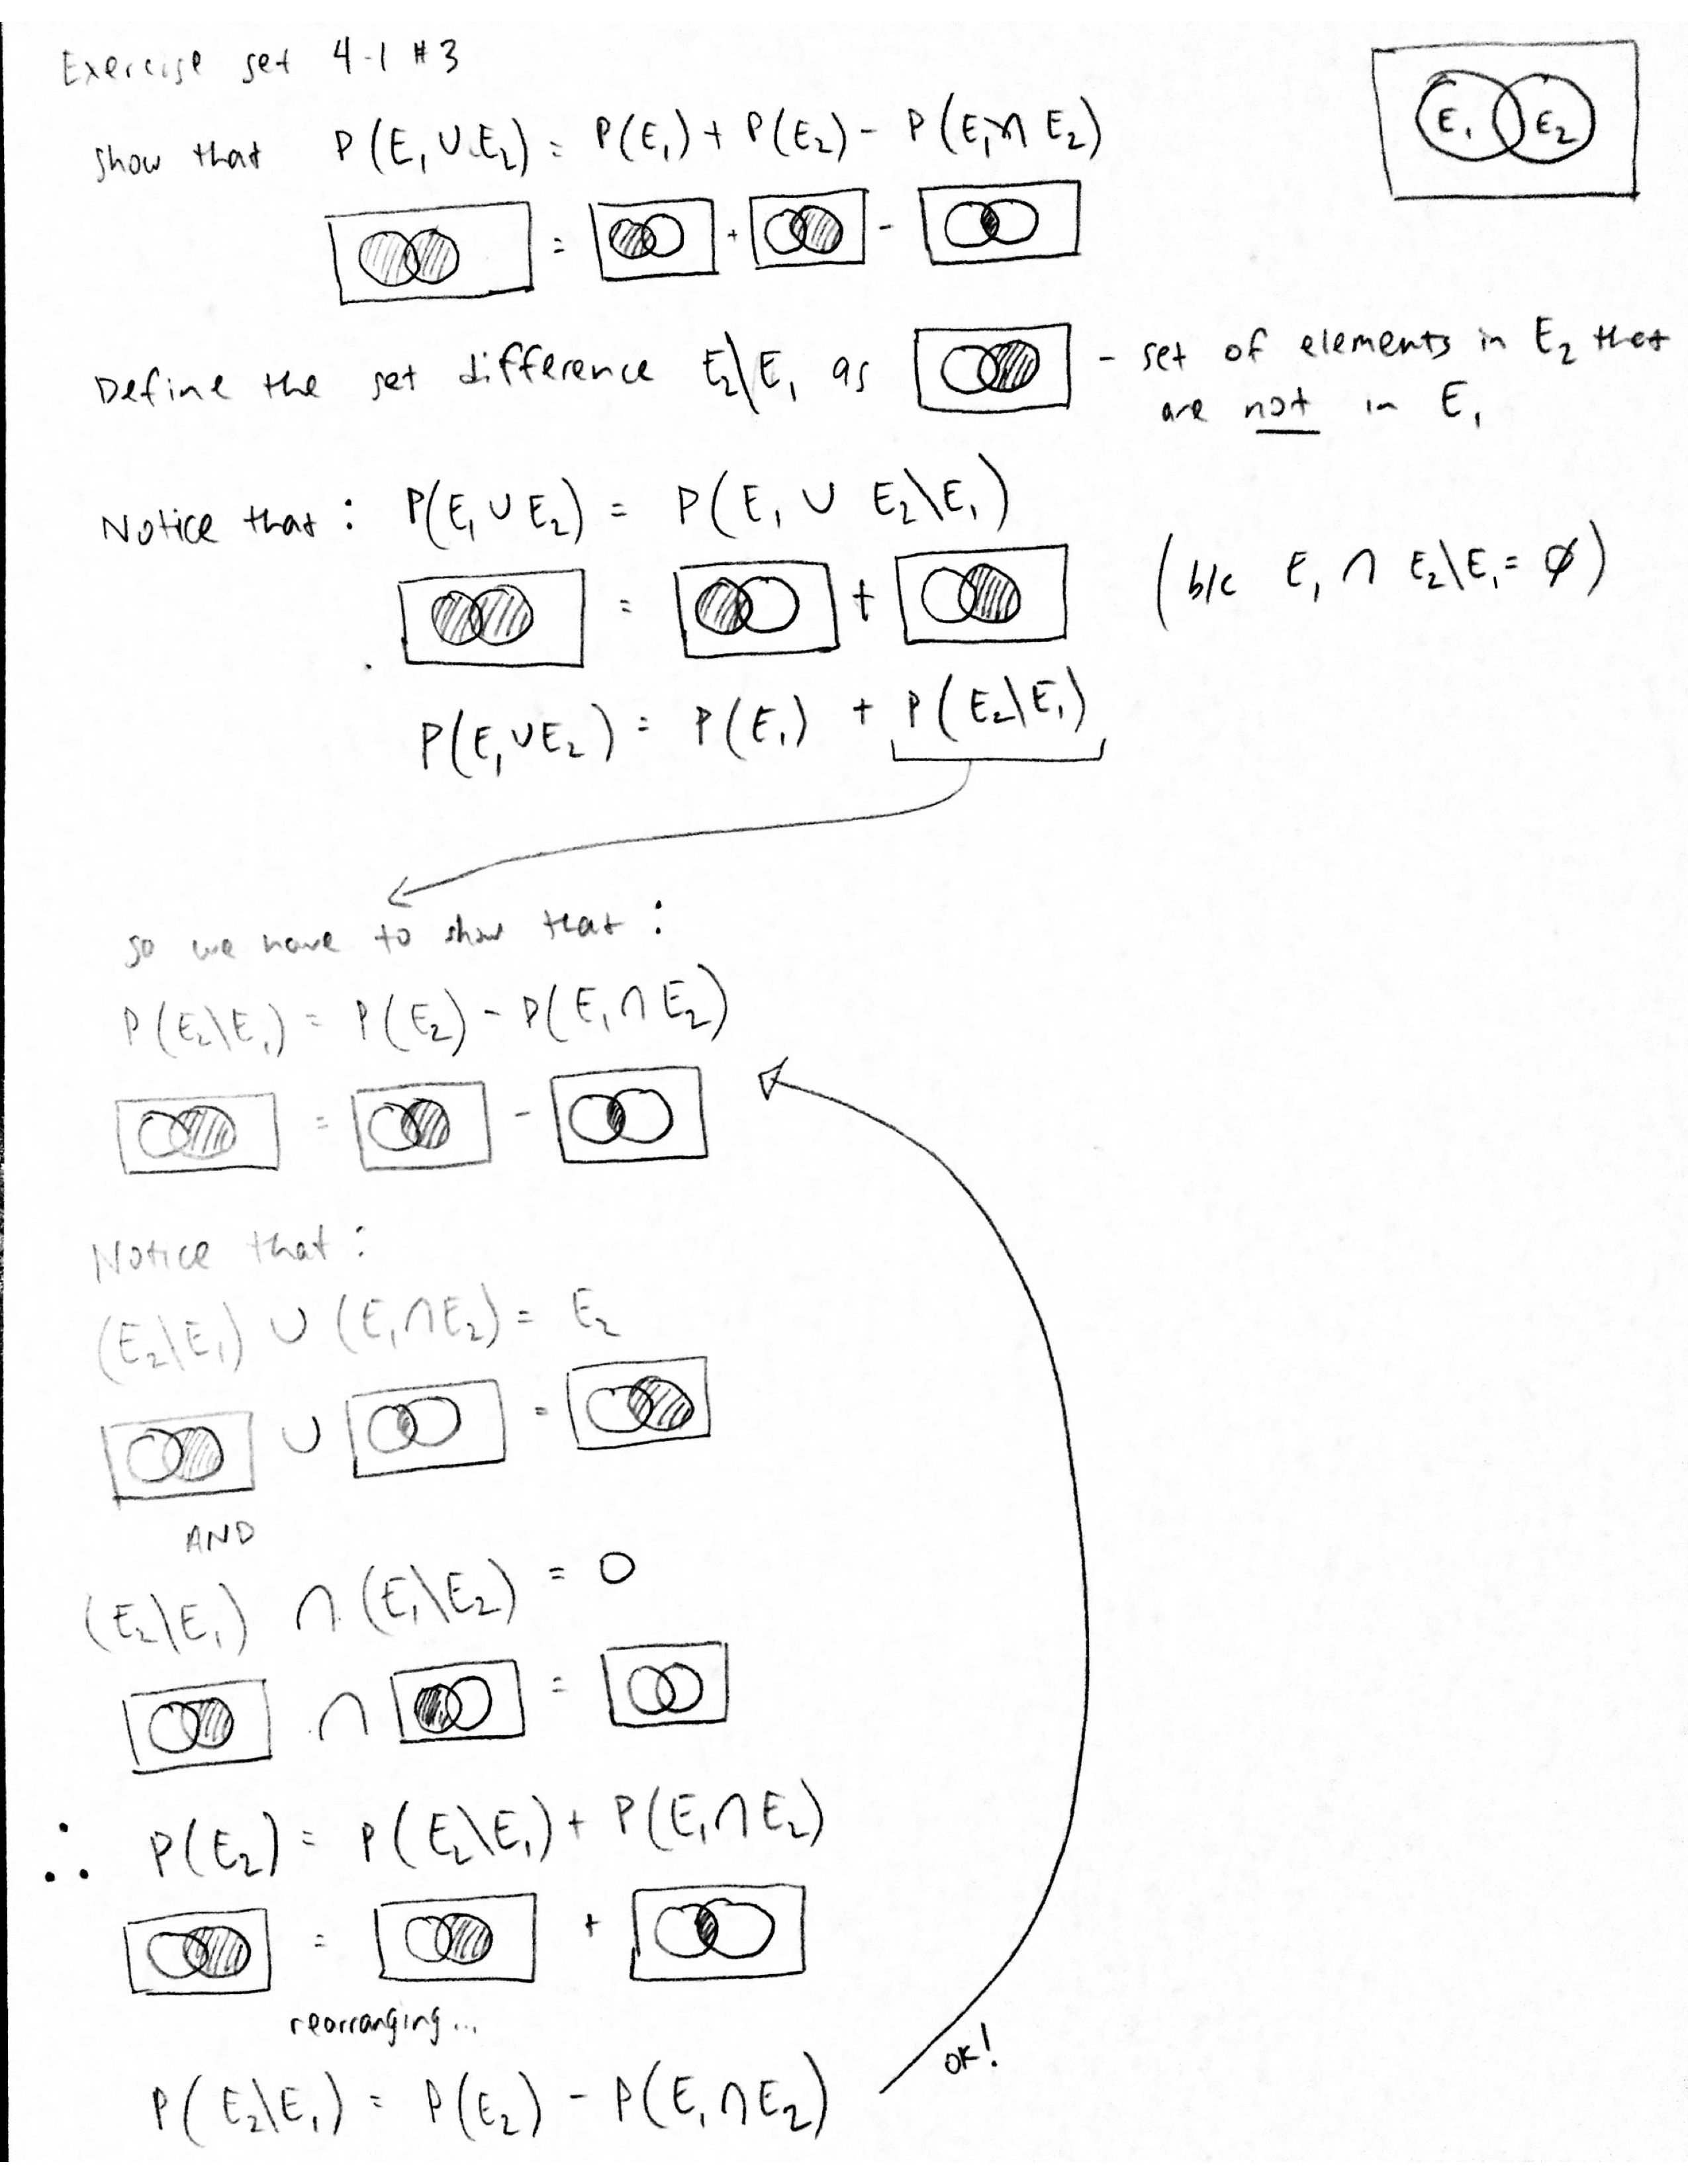 Exercise set 4-1 #3
E₁ E₂
show that P(E₁ ∪ E₂) = P(E₁) + P(E₂) - P(E₁ ∩ E₂)
= + -
Define the set difference E₂\E₁ as - set of elements in E₂ that
are not in E₁
Notice that: P(E₁ ∪ E₂) = P(E₁ ∪ E₂\E₁)
= + (b/c E₁ ∩ E₂\E₁ = ∅)
P(E₁∪E₂) = P(E₁) + P(E₂\E₁)
so we have to show that:
P(E₂\E₁) = P(E₂) - P(E₁ ∩ E₂)
= -
Notice that:
(E₂\E₁) ∪ (E₁∩E₂) = E₂
∪ =
AND
(E₂\E₁) ∩ (E₁\E₂) = 0
∩ =
∴ P(E₂) = P(E₂\E₁) + P(E₁∩E₂)
= +
rearranging...
P(E₂\E₁) = P(E₂) - P(E₁∩E₂) OK!